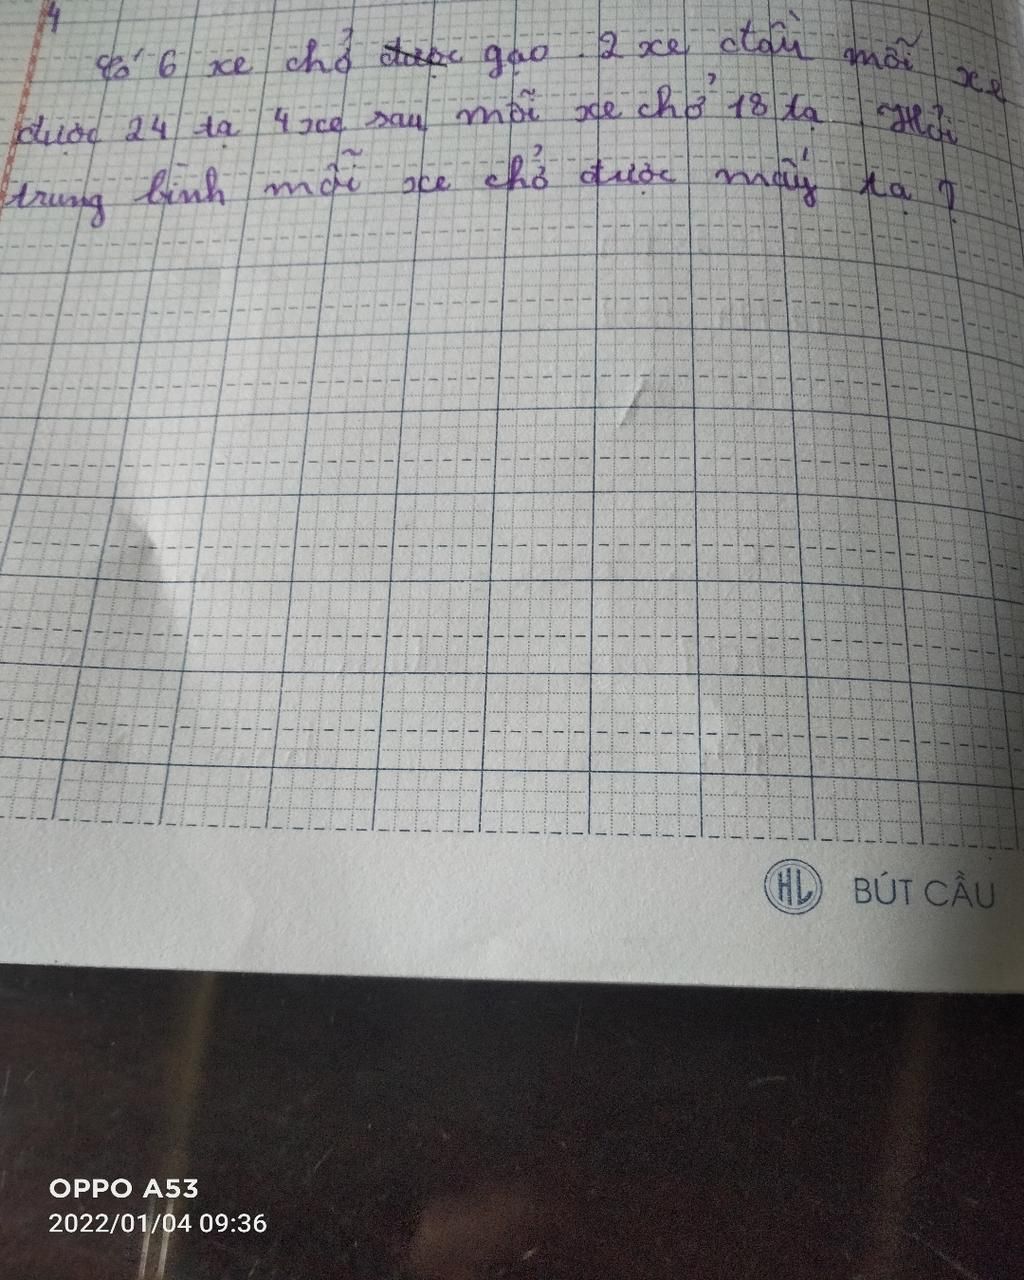 4
Có 6 xe chở gạo. 2 xe đầu mỗi xe
được 24 tạ 4 xe sau mỗi xe chở 18 tạ Hỏi
trung bình mỗi xe chở được mấy tạ ?
HL BÚT CẦU
OPPO A53
2022/01/04 09:36